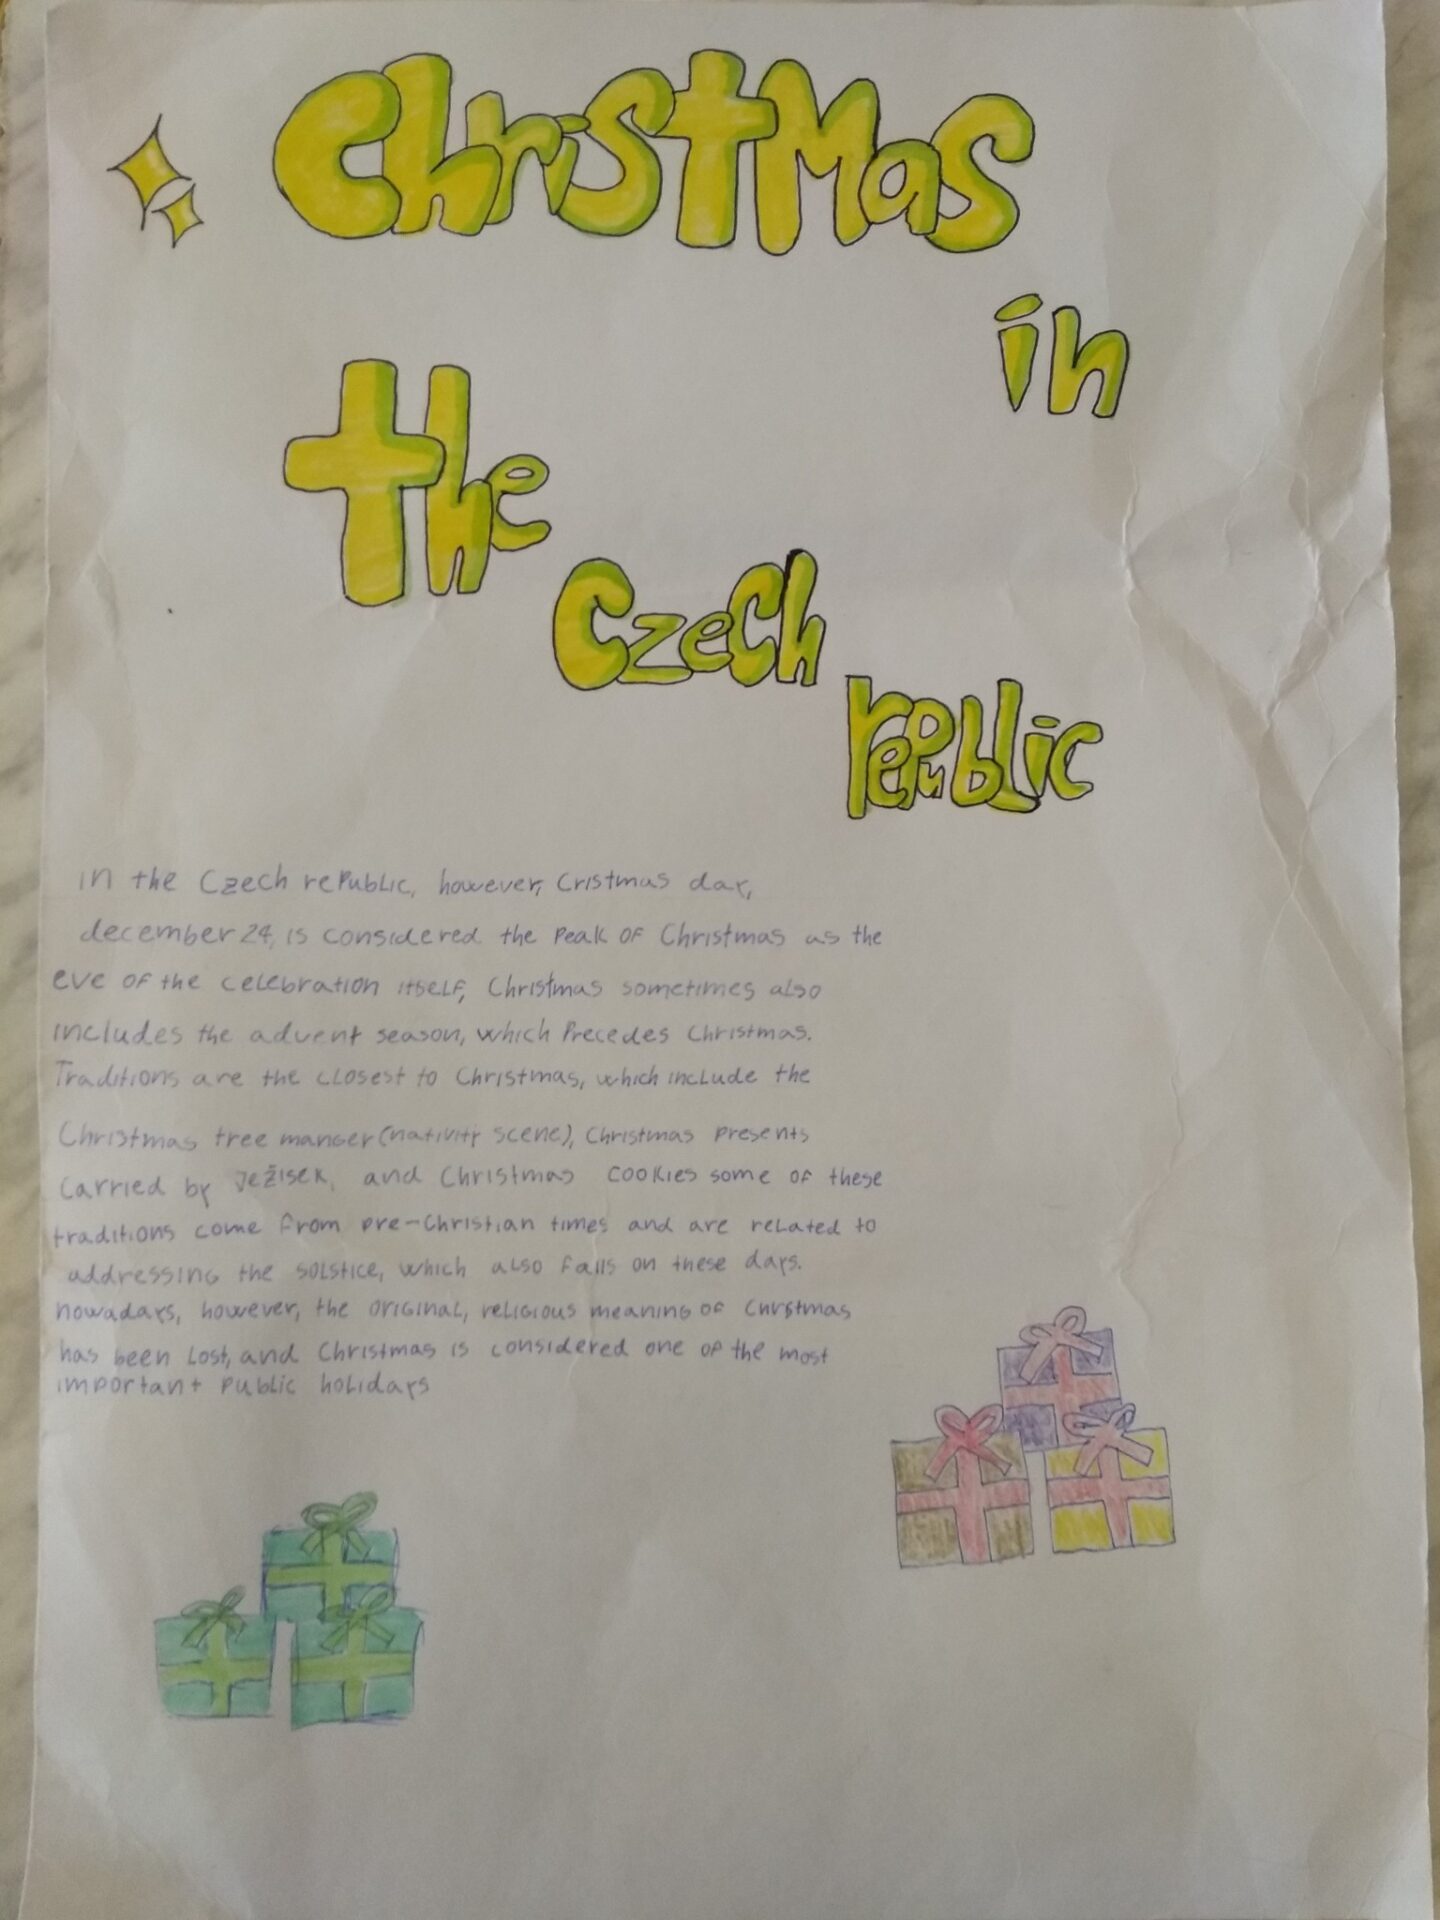 Christmas
in
the
Czech
republic
in the Czech republic, however, Cristmas day,
december 24, is considered the peak of Christmas as the
eve of the celebration itself, Christmas sometimes also
includes the advent season, which Precedes Christmas.
Traditions are the closest to Christmas, which include the
Christmas tree manger (nativity scene), Christmas presents
carried by Ježisek, and Christmas cookies some of these
traditions come from pre-Christian times and are related to
addressing the solstice, which also falls on these days.
nowadays, however, the original, religious meaning of Christmas
has been lost, and Christmas is considered one of the most
important public holidays